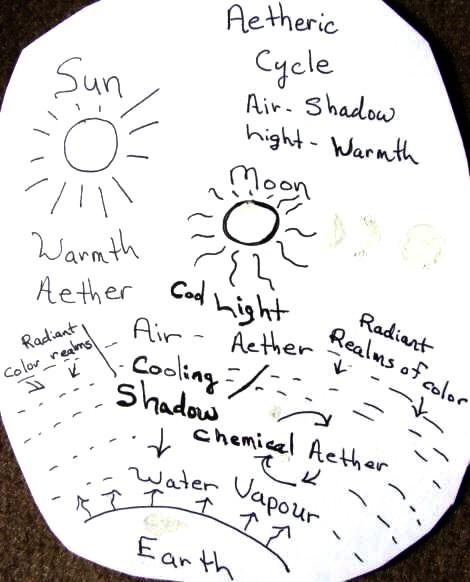 Aetheric
Cycle
Air - Shadow
Light - Warmth
Sun
Moon
Warmth
Aether
Cool Light
Radiant
color realms
Air - Aether
Cooling
Shadow
Radiant
Realms of color
Chemical Aether
Water Vapour
Earth